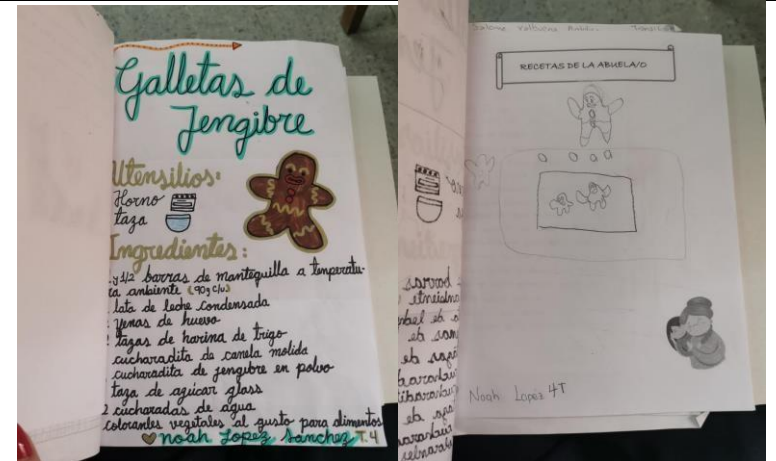 Galletas de
Jengibre
Utensilios:
Horno
taza
Ingredientes:
y 1/2 barras de mantequilla a temperatu-
ra ambiente (90g c/u)
lata de leche condensada
yemas de huevo
tazas de harina de trigo
cucharadita de canela molida
cucharadita de jengibre en polvo
taza de agúcar glass
2 cucharadas de agua
colorantes vegetales al gusto para alimentos
noah Lopez Sanchez T.4
RECETAS DE LA ABUELA/O
Noah Lopez 4T